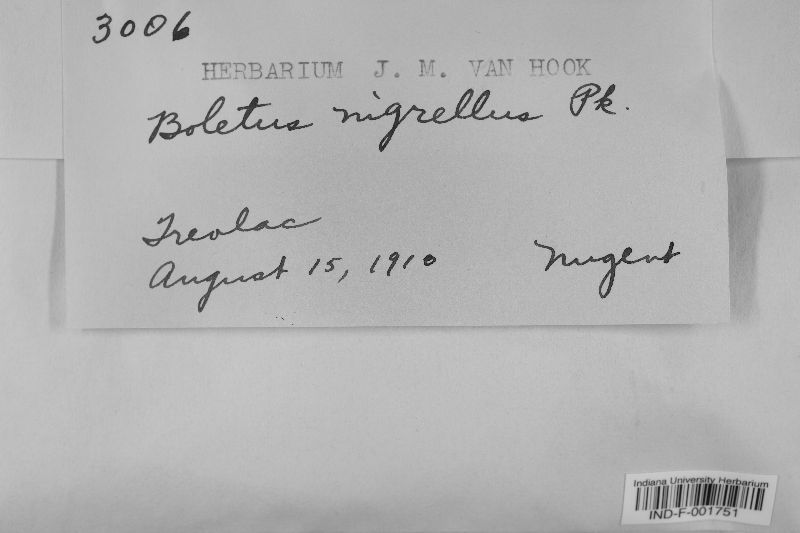 3006
HERBARIUM J. M. VAN HOOK
Boletus nigrellus Pk.
Trevlac
August 15, 1910 Nugent
Indiana University Herbarium
IND-F-001751